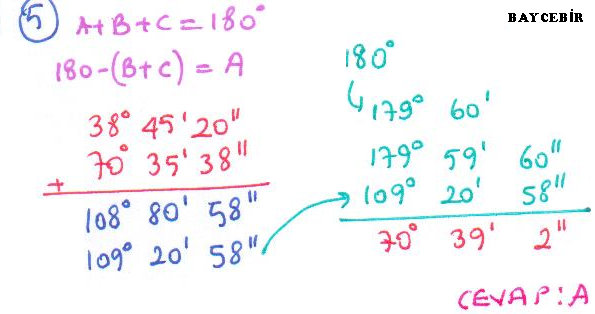 5 A+B+C=180°
180-(B+C)=A
38° 45' 20"
70° 35' 38"
+
108° 80' 58"
109° 20' 58"
BAYCEBİR
180°
179° 60'
179° 59' 60"
109° 20' 58"
70° 39' 2"
CEVAP:A